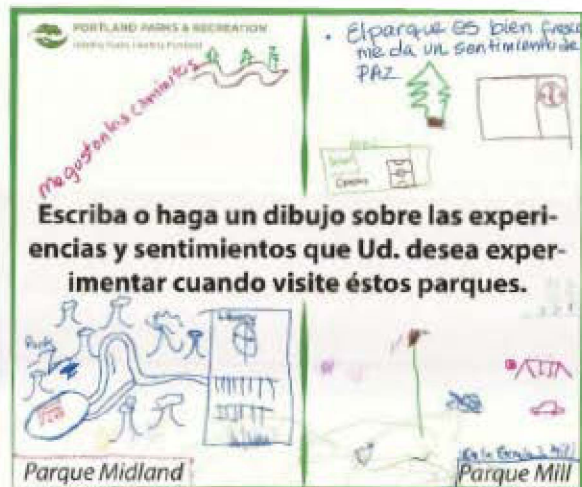 PORTLAND PARKS & RECREATION
Healthy Parks, Healthy Portland
me gustan los caminitos
• El parque es bien fresco
me da un sentimiento de
PAZ
Escriba o haga un dibujo sobre las experi-
encias y sentimientos que Ud. desea exper-
imentar cuando visite éstos parques.
Parque Midland
Parque Mill